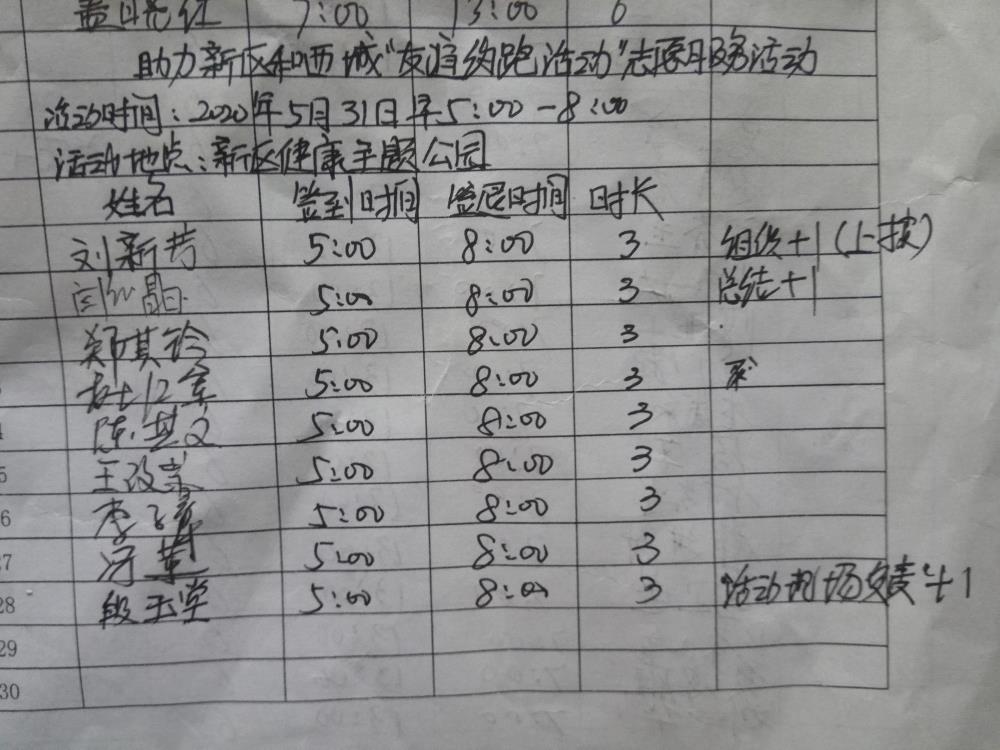 7:00 13:00 6
助力新区和西城“友谊约跑活动”志愿服务活动
活动时间：2020年5月31日早5:00-8:00
活动地点：新区健康主题公园
姓名 签到时间 签退时间 时长
刘新芳 5:00 8:00 3 组织+1（上报）
晶 5:00 8:00 3 总结+1
郑其珍 5:00 8:00 3
5:00 8:00 3
4 陈 5:00 8:00 3
5 王改 5:00 8:00 3
6 李 5:00 8:00 3
27 5:00 8:00 3
28 段玉堂 5:00 8:00 3 活动现场负责+1
29
30